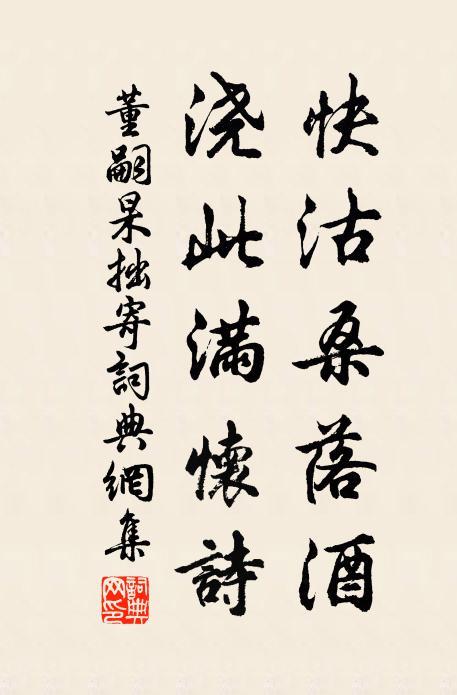 快沽桑落酒
浇此滿懷詩
董嗣杲拙寄詞典網集
詞典网印